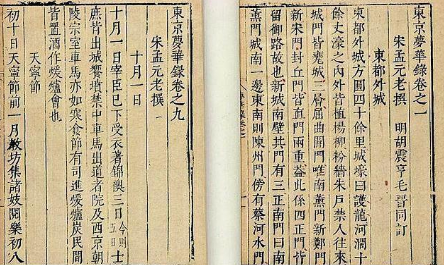 東京夢華錄卷之一
宋孟元老撰 明胡震亨毛晉同訂
東都外城
東都外城方圓四十餘里城濠曰護龍河濶十
餘丈濠之內外皆植楊柳粉牆朱戶禁人往來
城門皆甕城三層屈曲開門唯南薰門新鄭門
新宋門封丘門皆直門兩重蓋此係四正門皆
留御路故也新城南壁其門有三正南門曰南
薰門城南一邊東南則陳州門傍有蔡河水門
東京夢華錄卷之九
宋孟元老撰
十月一日
十月一日宰臣已下受衣著錦襖三日今五日士
庶皆出城饗墳禁中車馬出道者院及西京朝
陵宗室車馬亦如寒食節有司進煖爐炭民間
皆置酒作煖爐會也
天寧節
初十日天寧節前一月教坊集諸妓閱樂初八